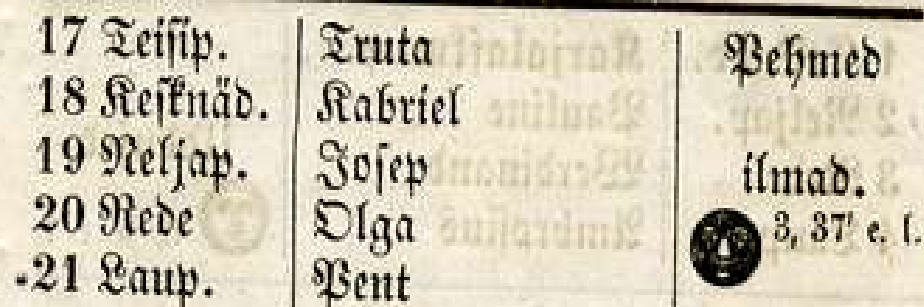 17 Teisip. Truta Pehmed
18 Kesknäd. Kabriel
19 Neljap. Josep ilmad.
20 Rede Olga 3, 37' e. l.
21 Laup. Pent